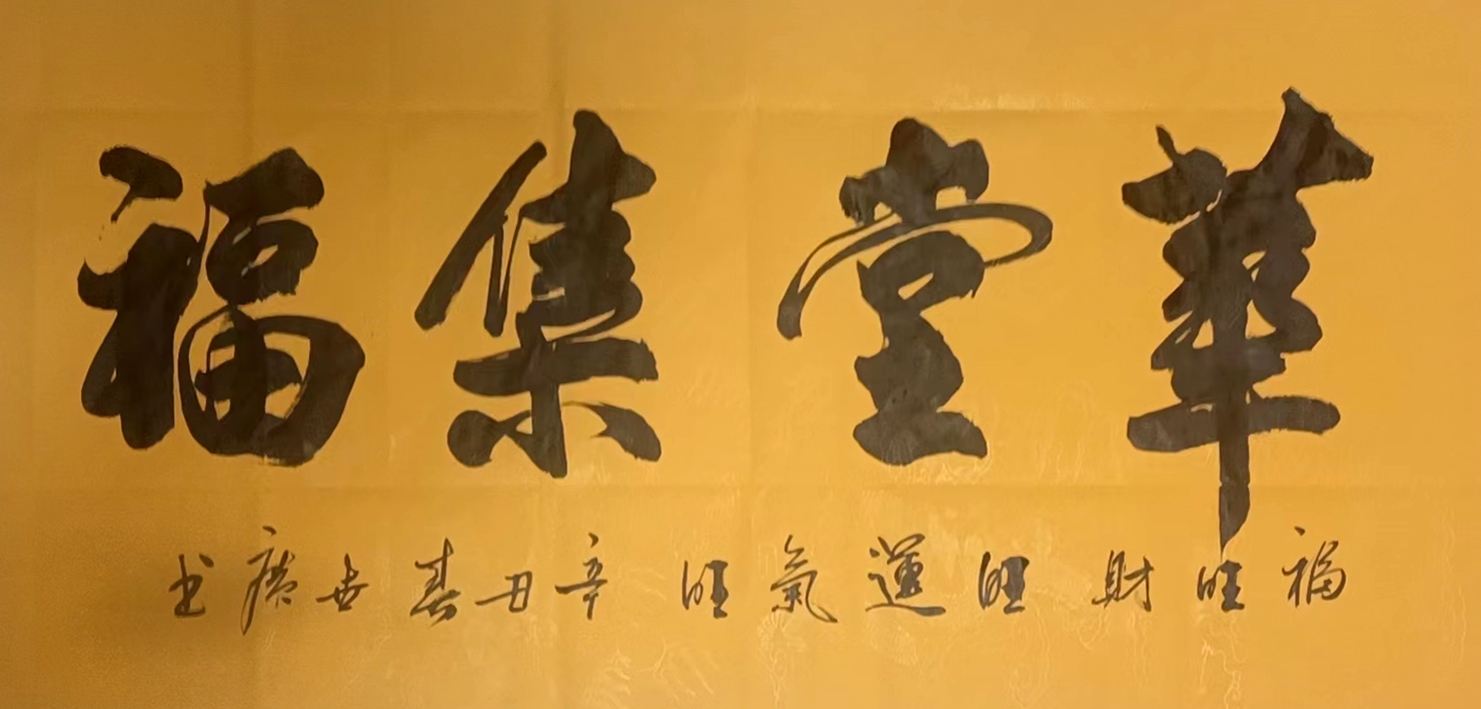 華堂集福
福旺財旺運氣旺辛丑春世廣书